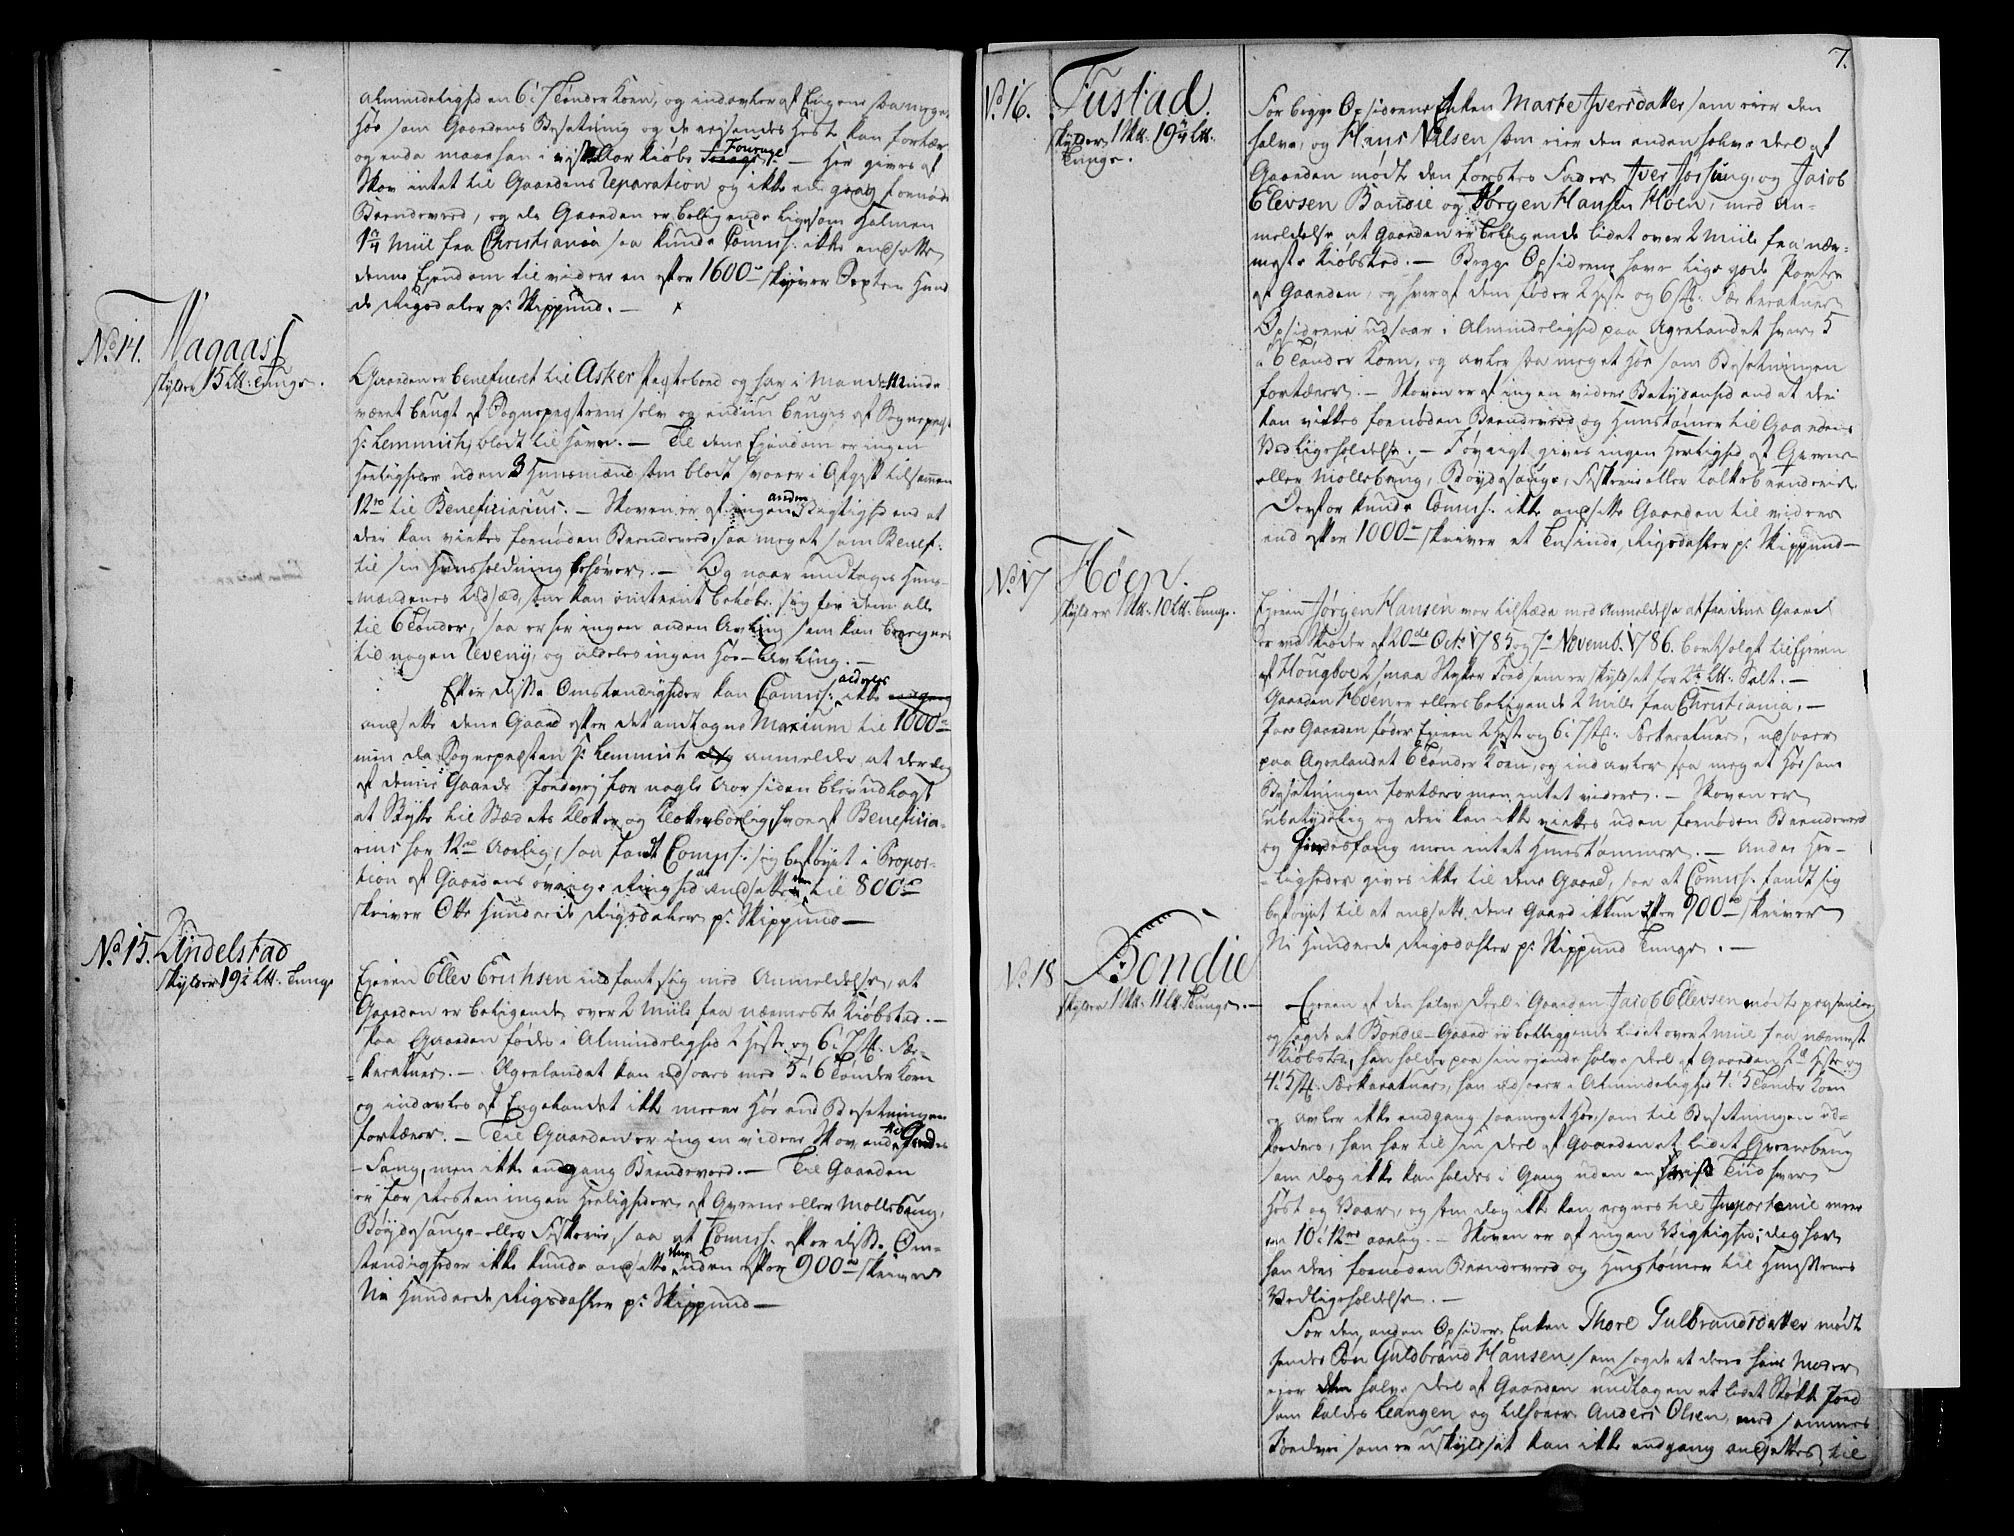 Almindelighed en 6 à 7 Tønder Korn, og indavler af Engene saa meget
Høe som Gaardens Besetning og de reisendes Heste kan fortære
og enda maae han i Aar kiøbe Fourage. — Her gives af
Skov intet til Gaardens Reparation og ikke en gang fornøden
Brendeved, og da Gaarden er beligende ligesom Halmen
1 1/4 Miil fra Christiania saa kunde Comiss: ikke ansætte
denne Ejendom til videre en efter 1600 rd skriver Sexten Hund-
de Rigsdaler pr Skippund. —
No 14. Wagaas
skylder 15 L℔: Tunge.
Gaarden er beneficeret til Asker Præstebord og har i Mands Minde
været brugt af Sogneprestene selv og endnu bruges af Sogneprest
Hr Lemmich blodt til Havn. — Til denne Ejendom er ingen
Herligheder uden 3 Huusmænd som blodt svarer i Afgift tilsammen
12 rd til Beneficiarius. — Skoven er af ingen anden Vigtighed end at
der kan virkes fornøden Brendeved, saa meget som Benef:
til sin Huusholdning behøver. — Og naar undtages Huus-
mændenes Udsæd, som kan omtrent beløbe sig for dem alle
til 6 Tønder, saa er her ingen anden Avling som kan beregnes
til nogen Reveny, og aldeles ingen Høe-Avling. —
Efter disse Omstændigheder kan Comiss: ikke aldeles
ansætte denne Gaard efter det antagne Maxium til 1000 rd
men da Sognepresten Hr Lemmich anmelder at der
af denne Gaards Jordvej for nogle Aar siden blev udlagt
et Stykke til Stædets Klokker og Klokkerbolig, hvoraf Beneficia-
rius har 12 rd Aarlig, saa fandt Comiss: sig beføyet i Propor-
tion af Gaardens øvrige Ringhed at ansætte den til 800 rd
skriver Otte Hundrede Rigsdaler pr Skippund —
No 15. Undelstad
skylder 19 1/2 L℔: Tunge
Ejeren Ellev Erichsen indfant sig med Anmeldelse, at
Gaarden er beligende over 2 Miile fra nærmeste Kiøbstad. —
Paa Gaarden fødes i Almindelighed 2 Heste og 6 à 7 St: Fæe-
kreatuer. — Agrelandet kan udsaaes med 5 à 6 Tønder Korn
og indavles af Engelandet ikke meere Høe end Besetningen
fortærer. — Til Gaarden er ingen videre Skov end til Gierdes-
Fang, men ikke engang Brendeved. — Til Gaarden
er for Resten ingen Herligheder af Qværne eller Møllebrug,
Bøydesauge eller Fiskerie, saa at Comiss: efter disse Om-
stendigheder ikke kunde ansætte den uden efter 900 rd skriver
Ni Hundrede Rigsdaler pr Skippund —
7.
No 16. Fustad.
skylder 1 Sk℔. 19 1/4 L℔.
Tunge.
For begge Opsidderne Enken Marte Iversdatter som eier den
halve, og Hans Nilsen som eier den anden halve deel af
Gaarden mødte den førstes Fader Iver Jossung, og Jacob
Elevsen Bondie og Jørgen Hansen Høen, med An-
meldelse at Gaarden er beligende lidet over 2 Miile fra nær-
meste Kiøbstad. — Begge Opsiddere have lige gode Parter
af Gaarden, og hver af dem føder 2 Heste og 6 St. Fæekreatuer
Opsidderne udsaar i Almindelighed paa Agrelandet hver 5
à 6 Tønder Korn, og avler saa meget Høe som Besetningen
fortærer. — Skoven er af ingen videre Betydenhed end at der
kan virkes fornøden Brendeved og Huustømmer til Gaardens
Vedligeholdelse. — I øvrigt gives ingen Herlighed af Qværne
eller Møllebrug, Bøydesauge, Fiskerie eller Kalkbrenderie
Derfor kunde Comiss: ikke ansætte Gaarden til videre
end efter 1000 rd skriver et Tusinde Rigsdaler pr Skippund —
No 17 Høen.
skylder 1 Sk℔: 10 L℔: Tunge.
Ejeren Jørgen Hansen var tilstæde med Anmeldelse at fra denne Gaard
er ved Skiøder af 20de Octr 1785 og 7de Novemb: 1786. bortsolgt til Ejeren
af Hougboe 2 smaa Stykker Jord som er skyldsat for L℔: Salt. —
Gaarden Høen er ellers beligende 2 Mille fra Christiania. —
Paa Gaarden føder Ejeren 2 Heste og 6 à 7 St: Fæekreatuer, udsaaer
paa Agrelandet 6 Tønder Korn, og indavler saa meget Høe som
Besetningen fortærer men intet videre. — Skoven er
ubetydelig og deri kan ikke virkes uden fornøden Brendeved
og Gierdesfang men intet Huustømmer. — Andre Her-
ligheder gives ikke til denne Gaard, saa at Comiss: fandt sig
beføyet til at ansætte denne Gaard ikkun efter 900 rd skriver
Ni Hundrede Rigsdaler pr Skippund Tunge. —
No 18 Bondie
skylder 1 Sk℔: 11 L℔ Tunge. —
Ejeren af den halve Deel i Gaarden Jacob Ellevsen mødte personlig
og sagde at Bondie-Gaard er beliggende lidet over 2 Miil fra nærmeste
Kiøbstæd, han holder paa sin ejende halve Deel af Gaarden 2de Heste og
4 à 5 St. Fæekreatuer, han udsaaer i Almindelighed 4 à 5 Tønder Korn
og avler ikke endgang saameget Høe, som til Besetningen ud-
fordres, han har til sin Deel af Gaarden et lidet Qvernebrug
som dog ikke kan holdes i Gang uden en Tiid hver
Høst og Vaar, og som dog ikke kan regnes til Importanse mere
en 10 à 12 rd aarlig. — Skoven er af ingen Vigtighed; dog har
han deri fornøden Brendeved og Huustømmer til Huusenes
Vedligeholdelse. —
For den anden Opsider Enken Thore Gulbrandsdatter mødt
hendes Søn Guldbrand Hansen, som sagde at dens hans Moder
ejer den halve Deel af Gaarden undtagen et lidet Støkke Jord
som kaldes Leangen og tilhører Anders Olsen, med sammes
Jordvei som er uskyldsat kan ikke endgang ansættes til